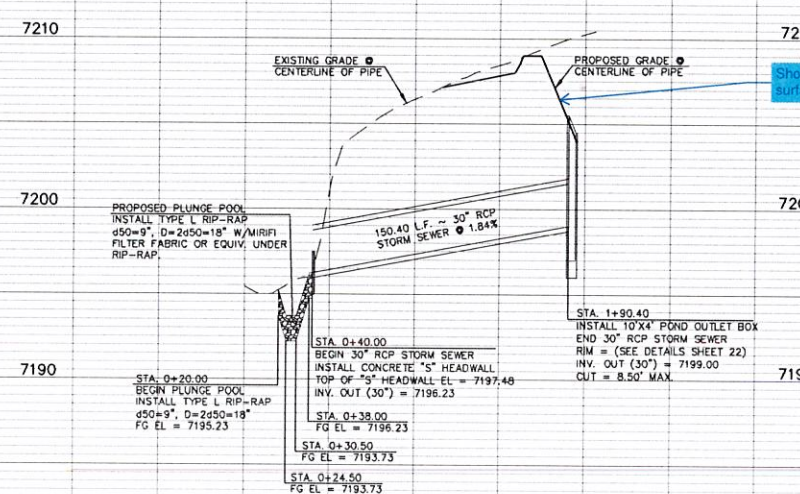 7210
72
EXISTING GRADE @
CENTERLINE OF PIPE
PROPOSED GRADE @
CENTERLINE OF PIPE
Sho
surf
7200
720
PROPOSED PLUNGE POOL
INSTALL TYPE L RIP-RAP
d50=9", D=2d50=18" W/MIRIFI
FILTER FABRIC OR EQUIV. UNDER
RIP-RAP.
150.40 L.F. ~ 30" RCP
STORM SEWER @ 1.84%
STA. 1+90.40
INSTALL 10'X4' POND OUTLET BOX
END 30" RCP STORM SEWER
RIM = (SEE DETAILS SHEET 22)
INV. OUT (30") = 7199.00
CUT = 8.50' MAX.
STA. 0+40.00
BEGIN 30" RCP STORM SEWER
INSTALL CONCRETE "S" HEADWALL
TOP OF "S" HEADWALL EL = 7197.48
INV. OUT (30") = 7196.23
7190
719
STA. 0+20.00
BEGIN PLUNGE POOL
INSTALL TYPE L RIP-RAP
d50=9", D=2d50=18"
FG EL = 7195.23
STA. 0+38.00
FG EL = 7196.23
STA. 0+30.50
FG EL = 7193.73
STA. 0+24.50
FG EL = 7193.73